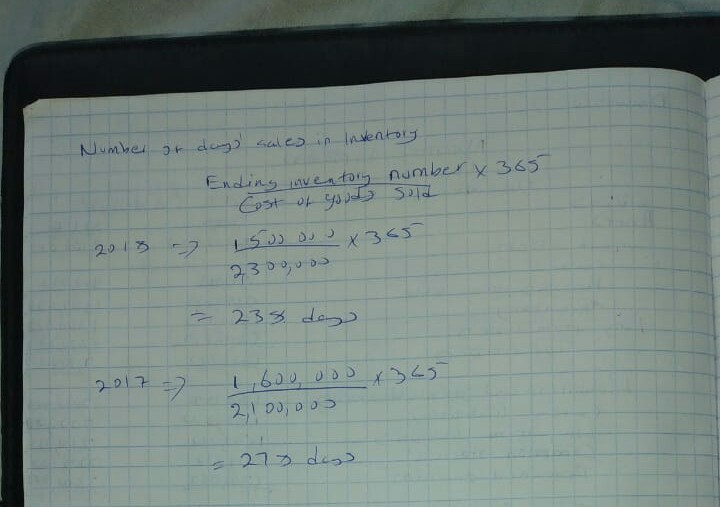 Number of days' sales in Inventory
Ending inventory number x 365
Cost of goods Sold
2018 => 1500 000 x 365
2,300,000
= 238 days
2017 => 1,600,000 x 365
2,100,000
= 278 days